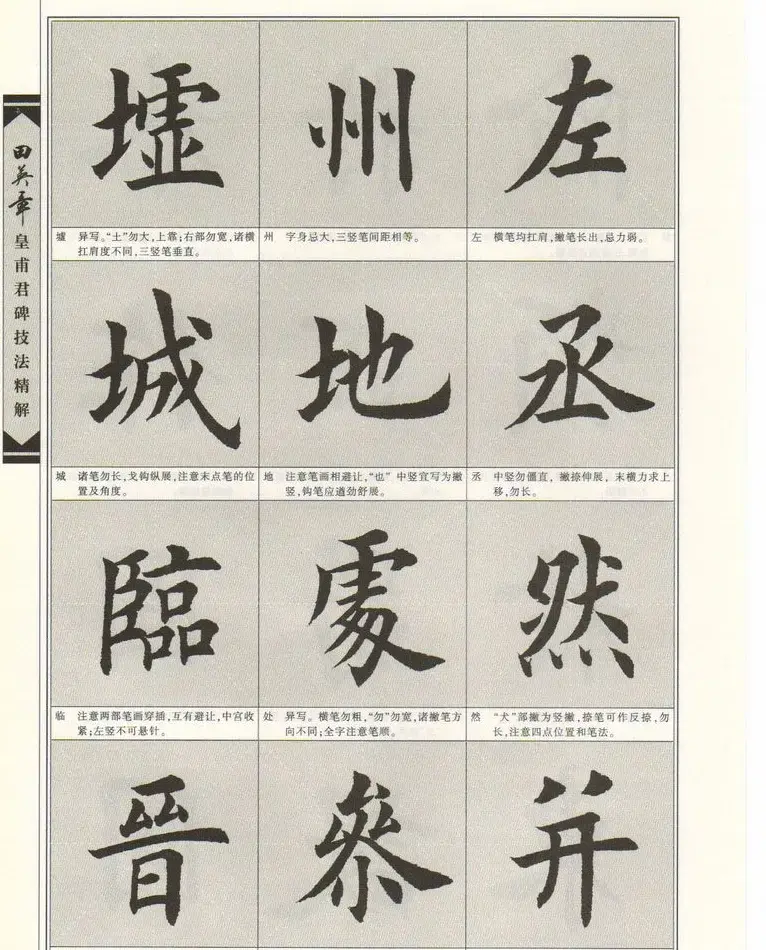 田英章皇甫君碑技法精解
墟 州 左
墟 异写。“土”勿大,上靠;右部勿宽,诸横
扛肩度不同,三竖笔垂直。
州 字身忌大,三竖笔间距相等。
左 横笔均扛肩,撇笔长出,忌力弱。
城 地 丞
城 诸笔勿长,戈钩纵展,注意末点笔的位
置及角度。
地 注意笔画相避让,“也”中竖宜写为撇
竖,钩笔应遒劲舒展。
丞 中竖勿僵直,撇捺伸展,末横力求上
移,勿长。
臨 處 然
临 注意两部笔画穿插,互有避让,中宫收
紧;左竖不可悬针。
处 异写。横笔勿粗,“勿”勿宽,诸撇笔方
向不同;全字注意笔顺。
然 “犬”部撇为竖撇,捺笔可作反捺,勿
长,注意四点位置和笔法。
晉 參 并